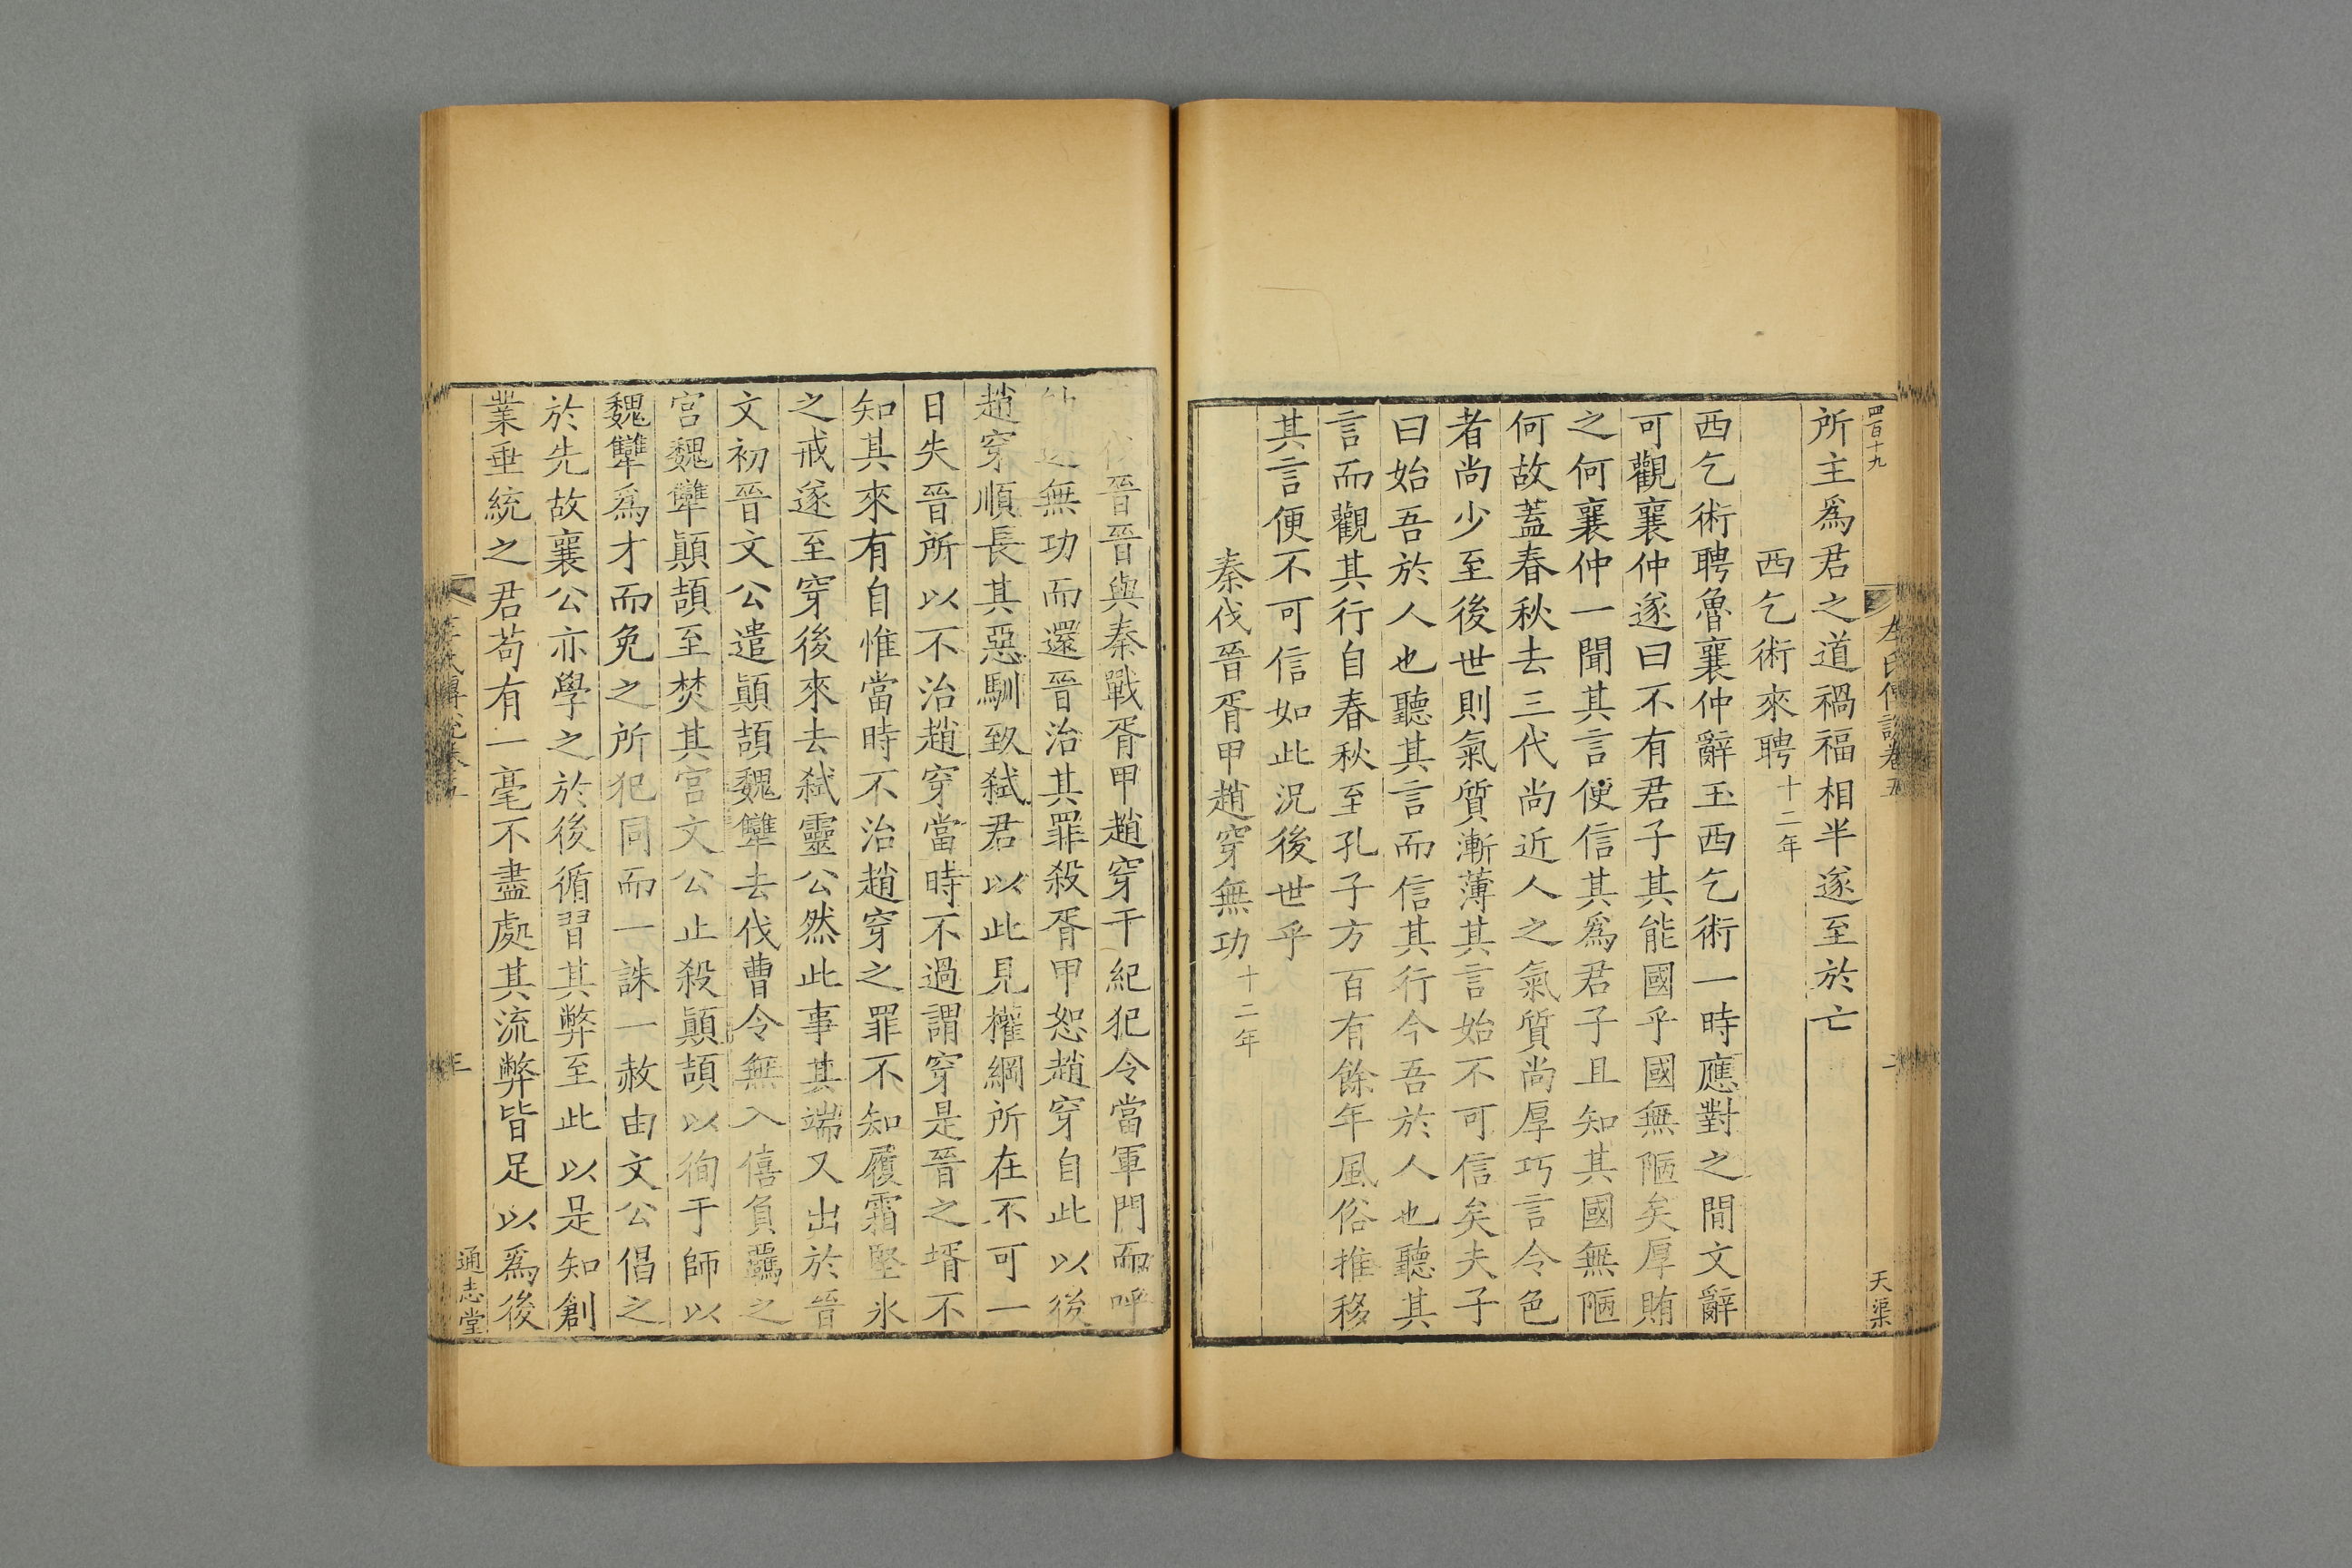 四百十九
左氏傳說卷五
天渠
所主爲君之道禍福相半遂至於亡
西乞術來聘十二年
西乞術聘魯襄仲辭玉西乞術一時應對之間文辭
可觀襄仲遂曰不有君子其能國乎國無陋矣厚賄
之何襄仲一聞其言便信其爲君子且知其國無陋
何故蓋春秋去三代尚近人之氣質尚厚巧言令色
者尚少至後世則氣質漸薄其言始不可信矣夫子
曰始吾於人也聽其言而信其行今吾於人也聽其
言而觀其行自春秋至孔子方百有餘年風俗推移
其言便不可信如此況後世乎
秦伐晉胥甲趙穿無功十二年
伐晉晉與秦戰胥甲趙穿干紀犯令當軍門而呼
無功而還晉治其罪殺胥甲恕趙穿自此以後
趙穿順長其惡馴致弑君以此見權綱所在不可一
日失晉所以不治趙穿當時不過謂穿是晉之壻不
知其來有自惟當時不治趙穿之罪不知履霜堅氷
之戒遂至穿後來去弑靈公然此事其端又出於晉
文初晉文公遣顚頡魏犨去伐曹令無入僖負羈之
宮魏犨顚頡至焚其宮文公止殺顚頡以徇于師以
魏犨爲才而免之所犯同而一誅一赦由文公倡之
於先故襄公亦學之於後循習其弊至此以是知創
業垂統之君苟有一毫不盡處其流弊皆足以爲後
通志堂